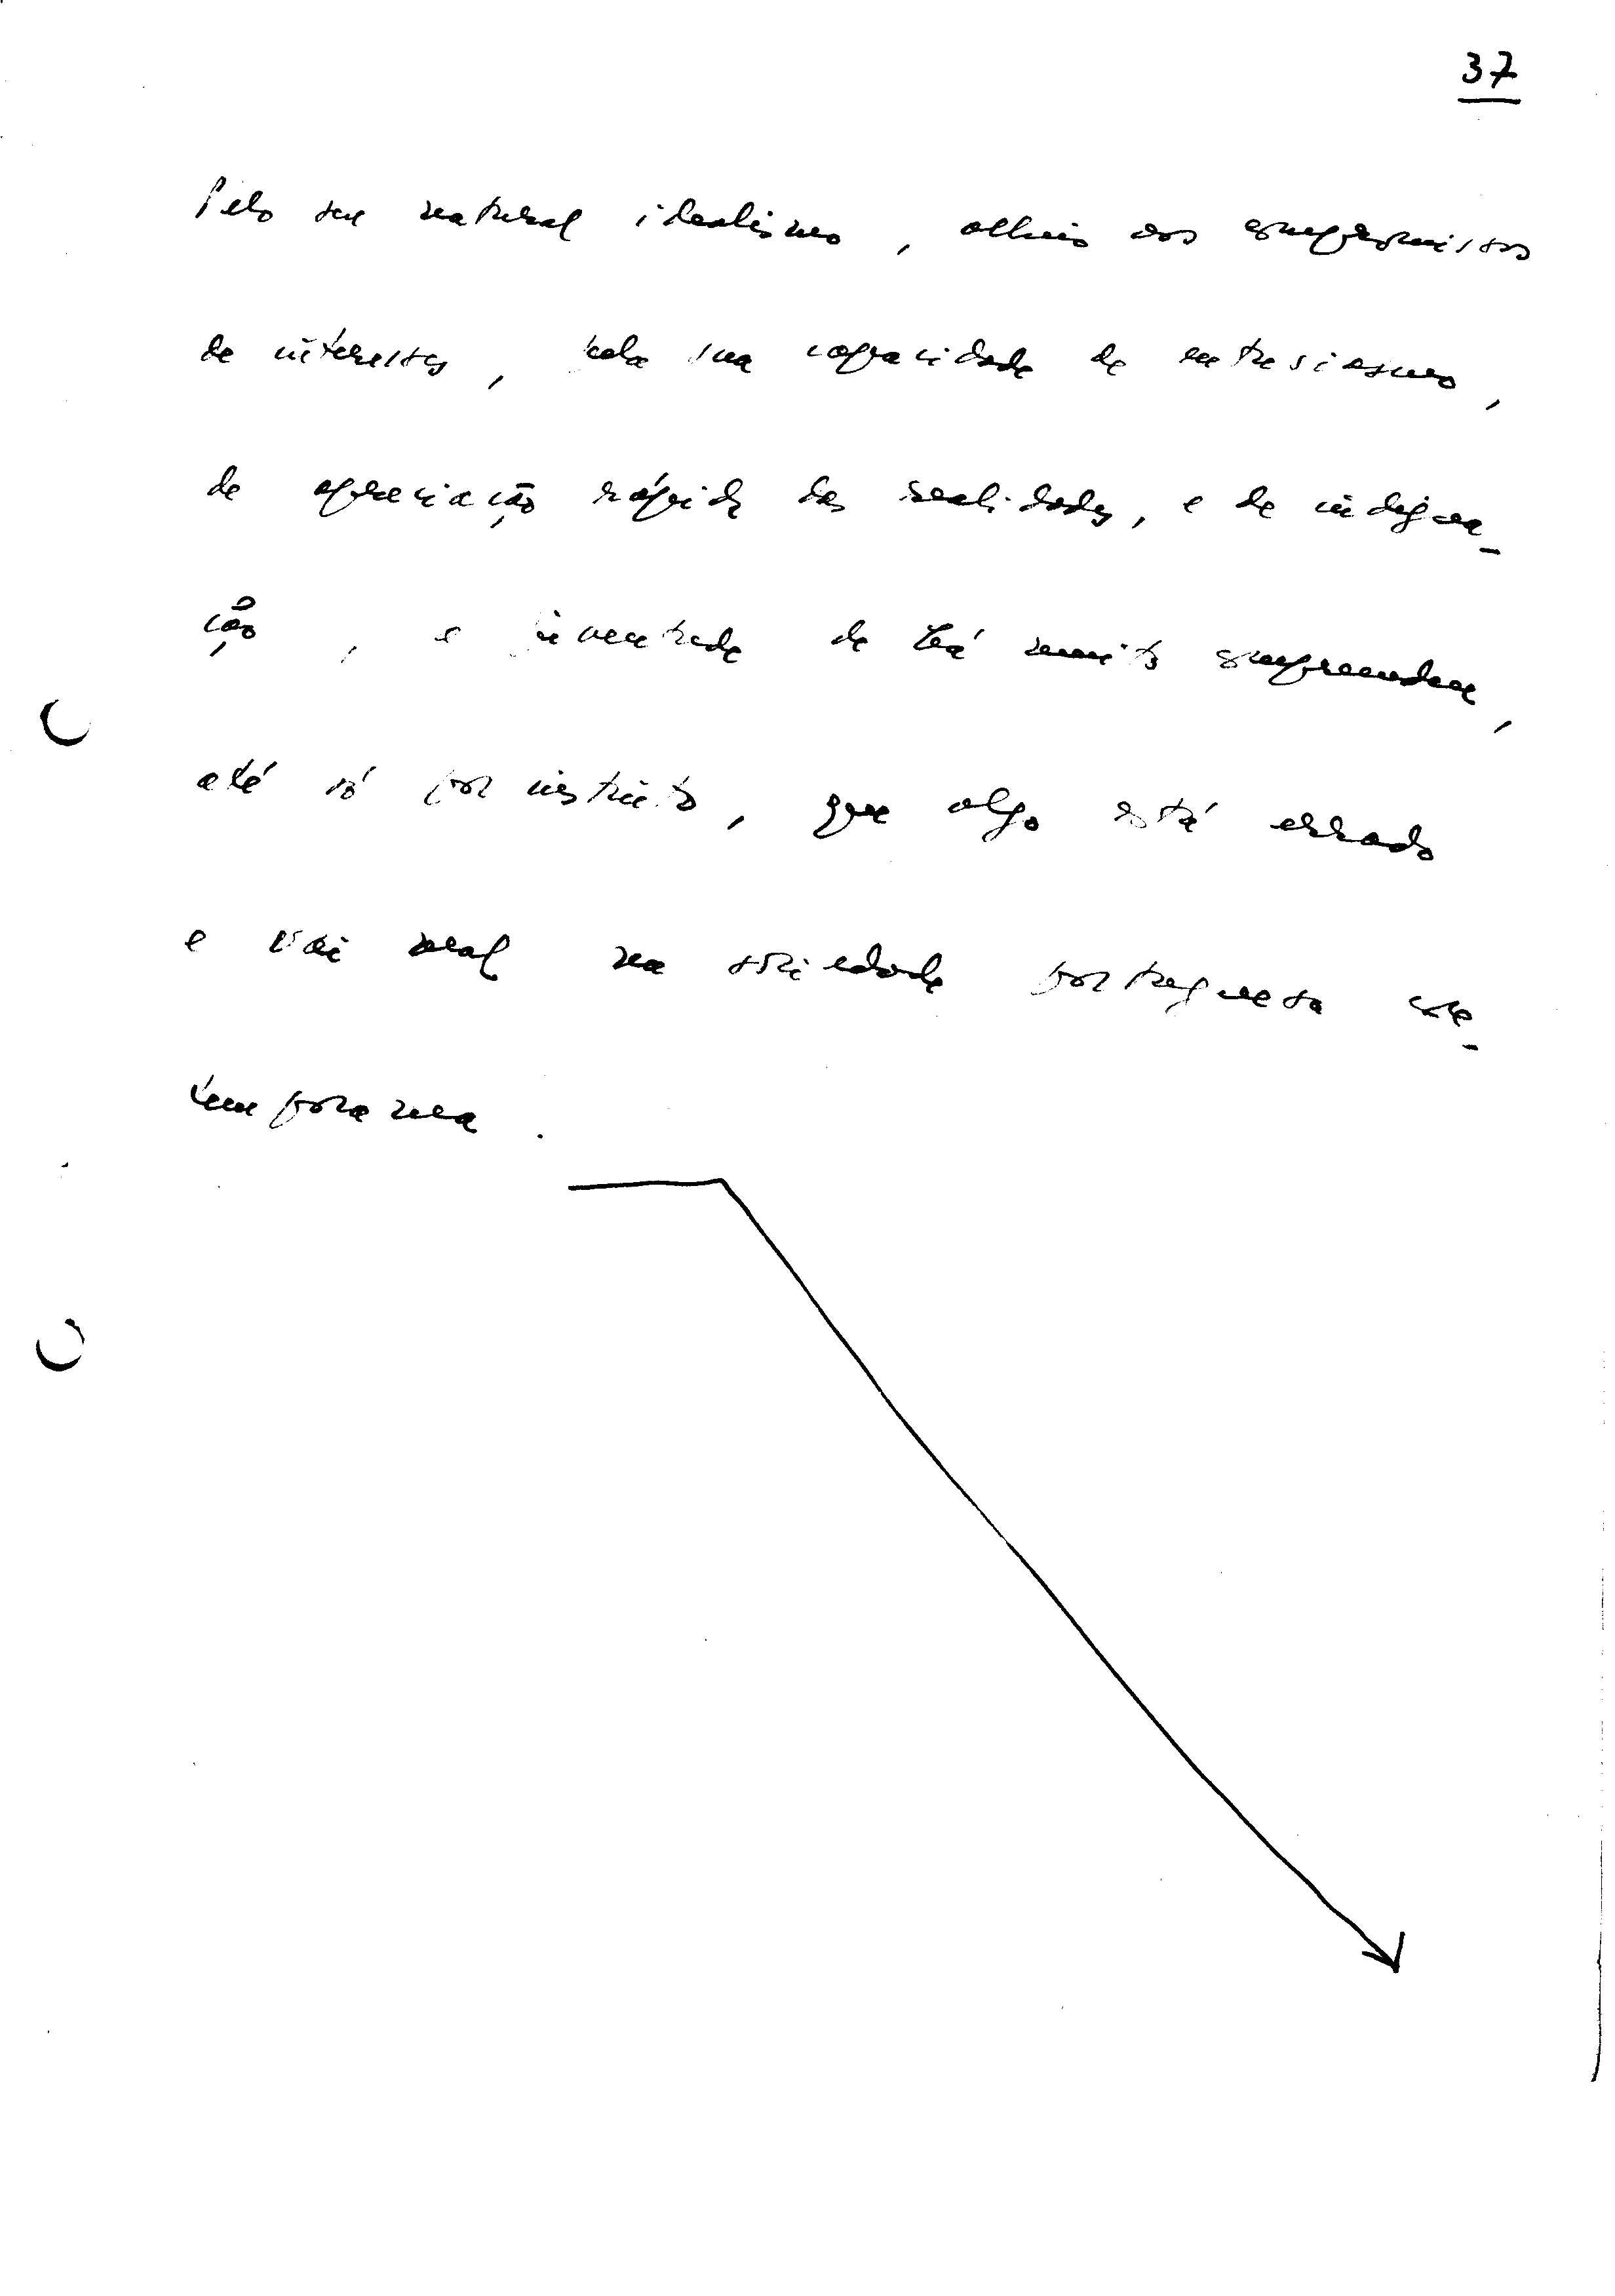 37
Pelo seu natural idealismo, alheio aos compromissos
de interesses, pela sua capacidade de entusiasmo,
de apreciação rápida das realidades, e de indigna-
ção, a juventude de há muito compreendeu,
até só por instinto, que algo está errado
e vai mal na sociedade portuguesa con-
temporanea.